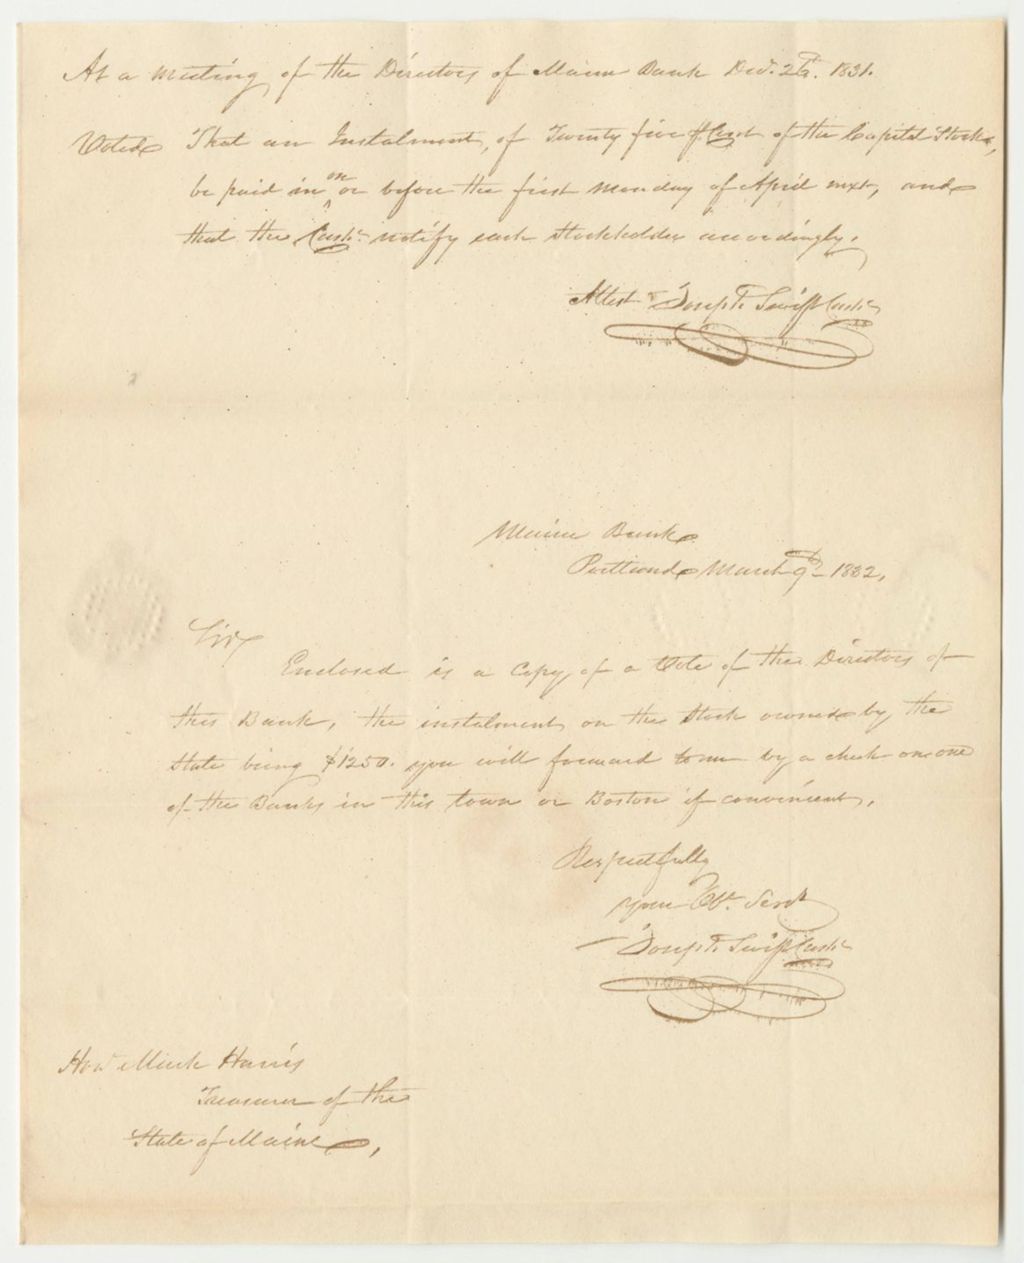 At a meeting of the Directors of Maine Bank Decr. 1831.
Voted That an Instalment, of Twenty five pr Cent of the Capital Stock,
be paid in on or before the first Monday of April next, and
that the Cashr. notify each Stockholder accordingly.
Attest Joseph Swift Cashr
Maine Bank
Portland March 9th 1832,
Sir,
Enclosed is a Copy of a Vote of the Directors of
this Bank, the instalment on the Stock owned by the
State being $1250. you will forward to me by a check on one
of the Banks in this town or Boston if convenient.
Respectfully
your Obt. Servt
Joseph Swift Cashr
Hon Mark Harris
Treasurer of the
State of Maine,